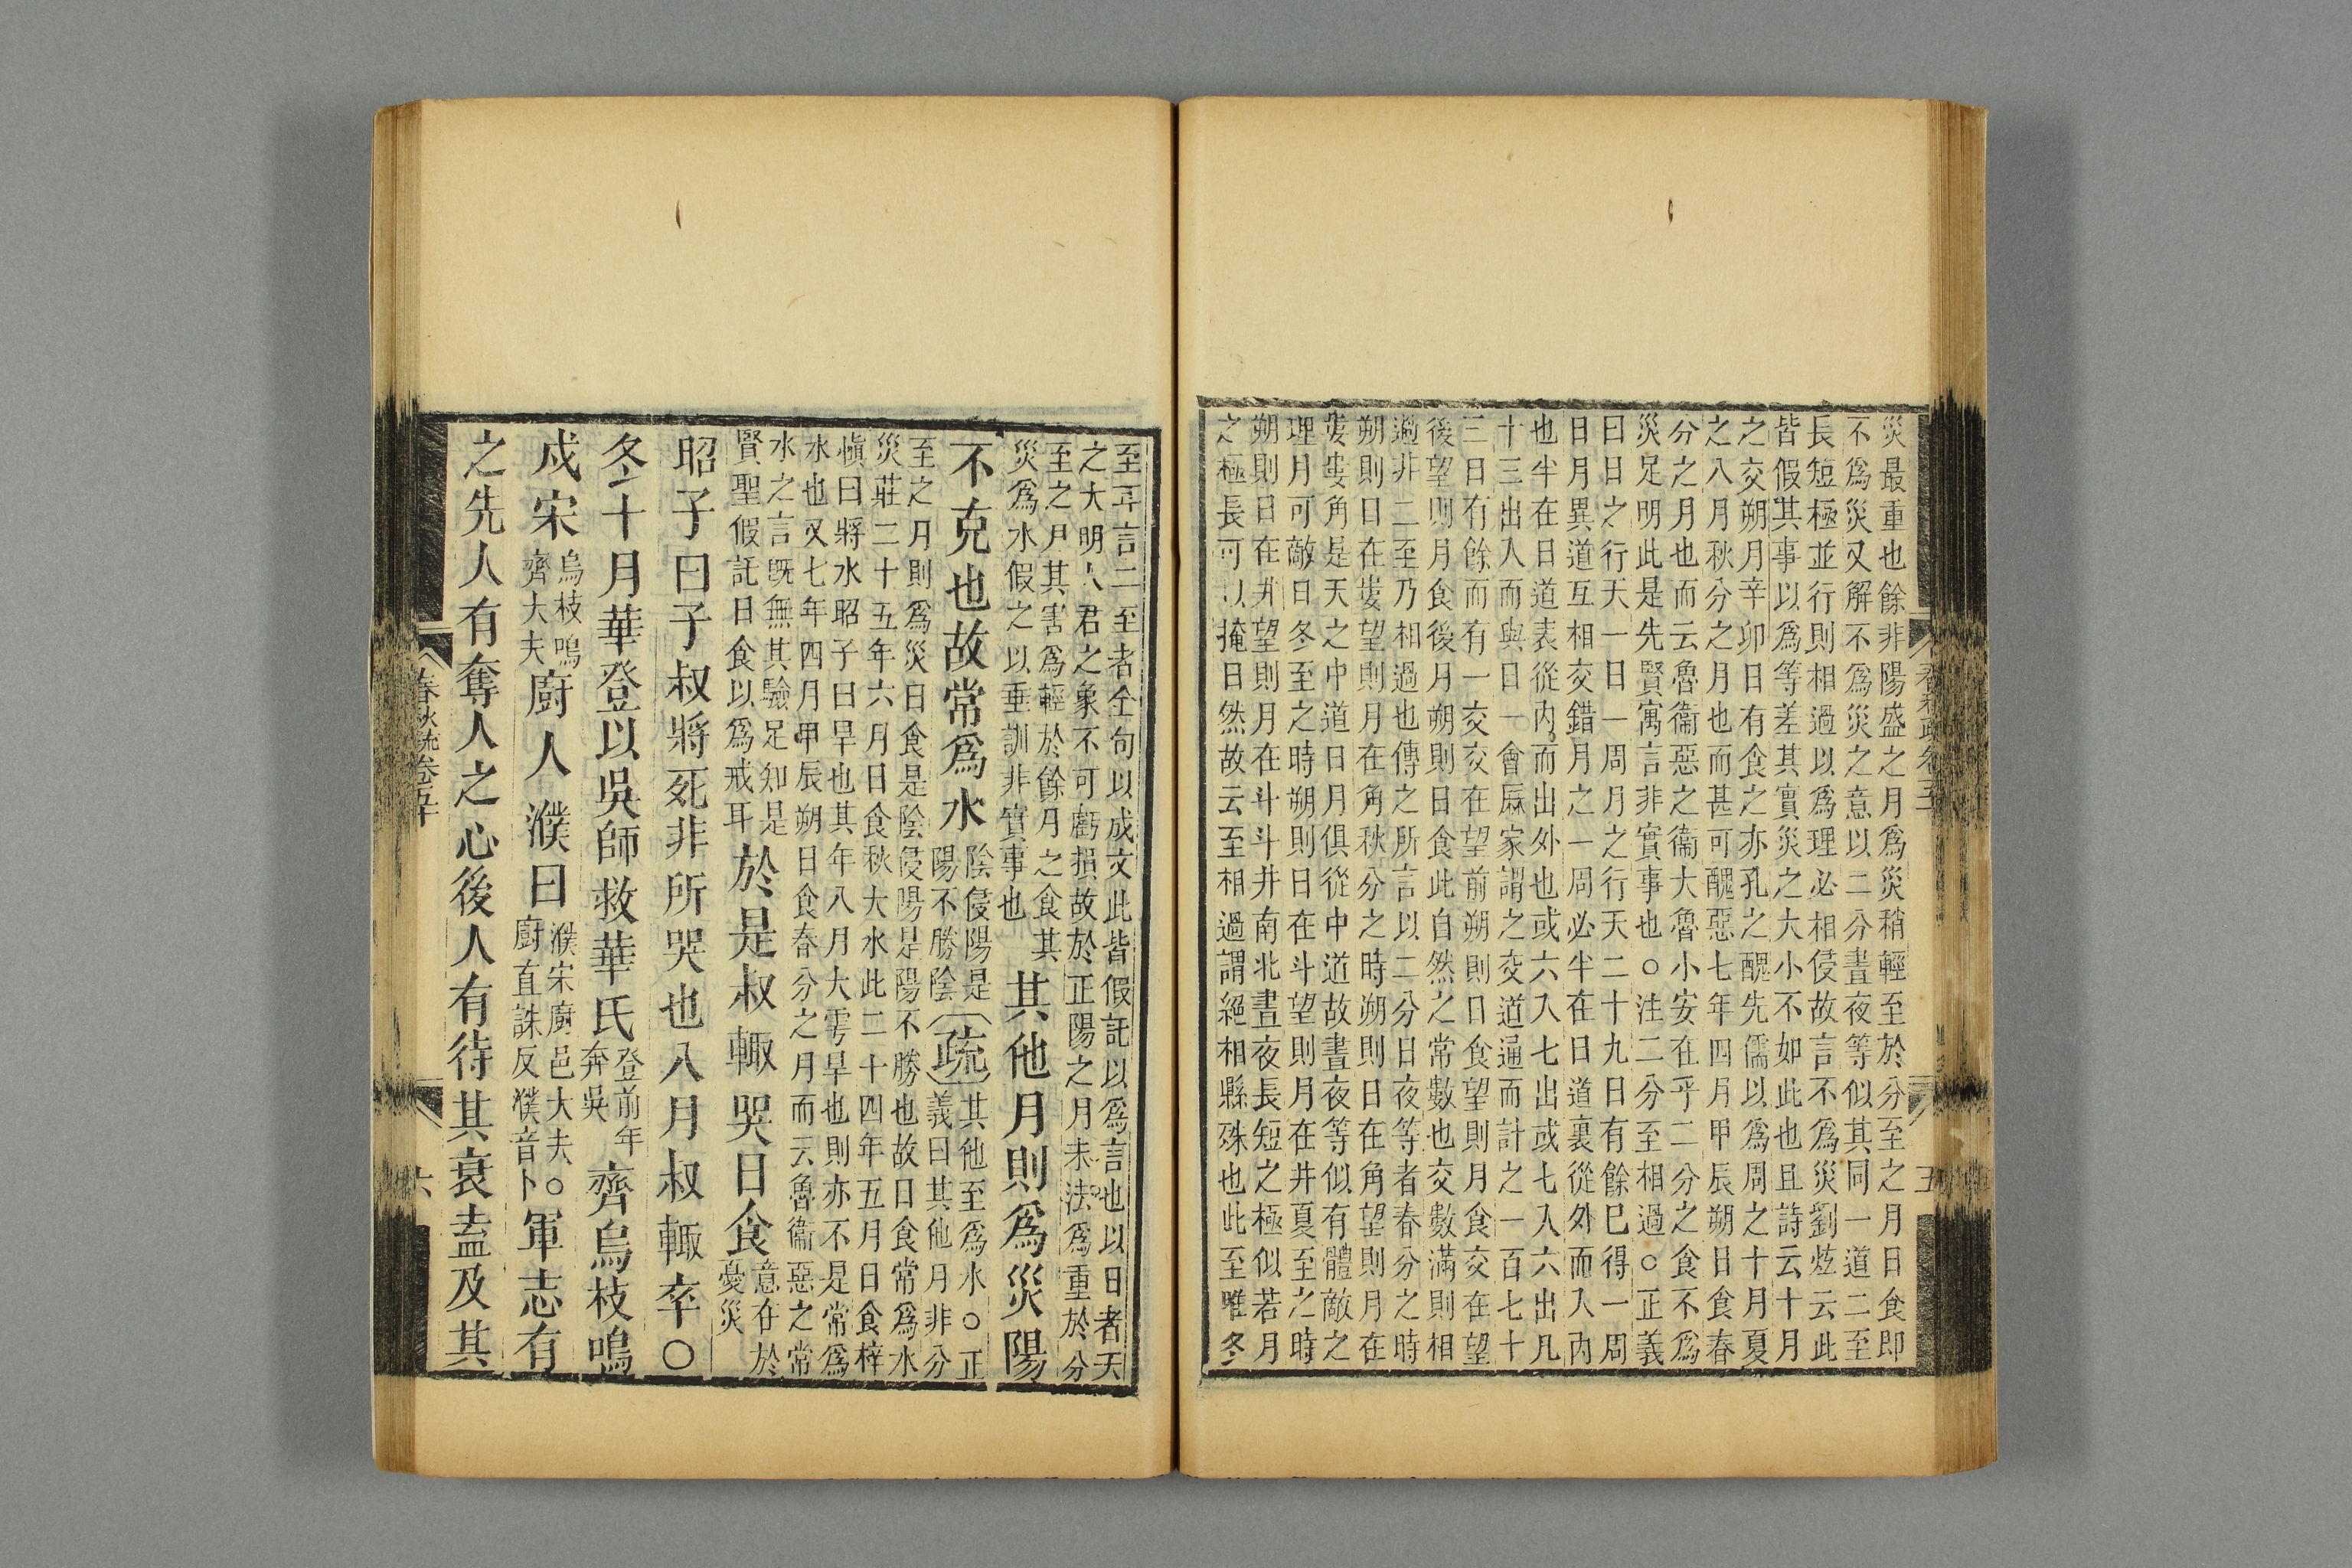 災最重也餘非陽盛之月爲災稍輕至於分至之月日食即
不爲災又解不爲災之意以二分晝夜等似其同一道二至
長短極並行則相過以爲理必相侵故言不爲災劉炫云此
皆假其事以爲等差其實災之大小不如此也且詩云十月
之交朔月辛卯日有食之亦孔之醜先儒以爲周之十月夏
之八月秋分之月也而甚可醜惡七年四月甲辰朔日食春
分之月也而云魯衞惡之衞大魯小安在乎二分之食不爲
災足明此是先賢寓言非實事也○注二分至相過○正義
曰日之行天一日一周月之行天二十九日有餘已得一周
日月異道互相交錯月之一周必半在日道裏從外而入內
也半在日道表從內而出外也或六入七出或七入六出凡
十三出入而與日一會厤家謂之交道通而計之一百七十
三日有餘而有一交交在望前朔則日食望則月食交在望
後望則月食後月朔則日食此自然之常數也交數滿則相
過非二至乃相過也傳之所言以二分日夜等者春分之時
朔則日在婁望則月在角秋分之時朔則日在角望則月在
婁婁角是天之中道日月俱從中道故晝夜等似有體敵之
理月可敵日冬至之時朔則日在斗望則月在井夏至之時
朔則日在井望則月在斗斗井南北晝夜長短之極似若月
之極長可以掩日然故云至相過謂絕相縣殊也此至唯冬
至耳言二至者全句以成文此皆假託以爲言也以日者天
之大明人君之象不可虧損故於正陽之月未法爲重於分
至之月其害爲輕於餘月之食其
災爲水假之以垂訓非實事也
其他月則爲災陽
不克也故常爲水
陰侵陽是
陽不勝陰
疏
其他至爲水○正
義曰其他月非分
至之月則爲災日食是陰侵陽是陽不勝也故日食常爲水
災莊二十五年六月日食秋大水此二十四年五月日食梓
愼曰將水昭子曰旱也其年八月大雩旱也則亦不是常爲
水也又七年四月甲辰朔日食春分之月而云魯衞惡之常
水之言既無其驗足知是
賢聖假託日食以爲戒耳
於是叔輒哭日食
意在於
憂災
昭子曰子叔將死非所哭也八月叔輒卒○
冬十月華登以吳師救華氏
登前年
奔吳
齊烏枝鳴
戍宋
烏枝鳴
齊大夫
廚人濮曰
濮宋廚邑大夫○
廚直誅反濮音卜
軍志有
之先人有奪人之心後人有待其衰盍及其
春秋疏卷五十
六